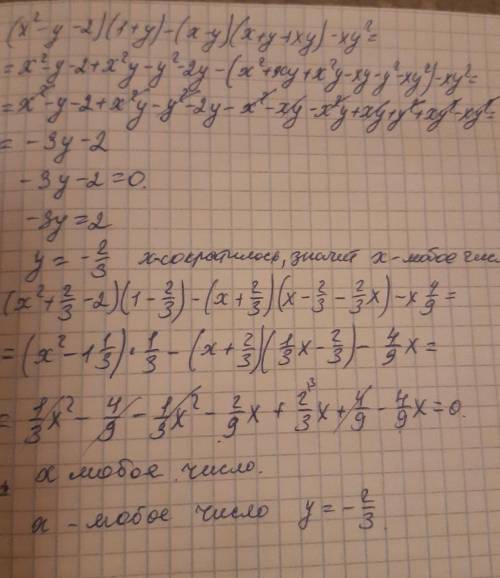 (x²-y-2)(1+y)-(x-y)(x+y+xy)-xy²=
=x²-y-2+x²y-y²-2y-(x²+xy+x²y-xy-y²-xy²)-xy²=
=x²-y-2+x²y-y²-2y-x²-xy-x²y+xy+y²+xy²-xy²=
= -3y-2
-3y-2=0.
-3y=2
y=-2/3 x-сократилось, значит x-любое чис
(x²+2/3-2)(1-2/3)-(x+2/3)(x-2/3-2/3x)-x4/9=
=(x²-1 1/3)·1/3-(x+2/3)(1/3x-2/3)-4/9x=
=1/3x²-4/9-1/3x²-2/9x+2/3³x+4/9-4/9x=0.
x любое число.
x - любое число y=-2/3.